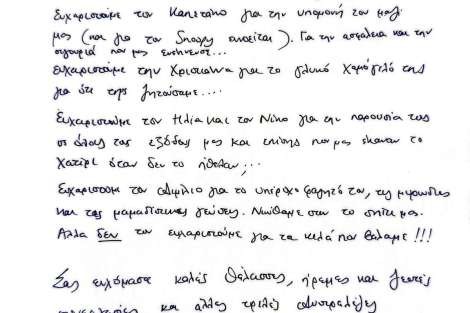 Ευχαριστούμε τον Καπετάνιο για την υπομονή του μαζί
μας (και για τον Snoopy εννοείται). Για την ασφάλεια και την
σιγουριά που μας ενέπνευσε...
Ευχαριστούμε την Χριστιάννα για το γλυκό χαμόγελό της
για ότι της ζητούσαμε....
Ευχαριστούμε τον Ηλία και τον Νίκο για την παρουσία τους
σε όλους τας εξόδους μας και επίσης που μας έκαναν το
χατίρι όταν δεν το ήθελαν...
Ευχαριστούμε τον για το υπέροχο φαγητό του, τις μυρωδιές
και τας μαμαδίστικες γεύσεις. Νιώθαμε σαν το σπίτι μας.
Αλλά δεν τον ευχαριστούμε για τα κιλά που βάλαμε!!!
Σας ευχόμαστε καλές θάλασσες, ήρεμες και ζεστές
και άλλες τρελές